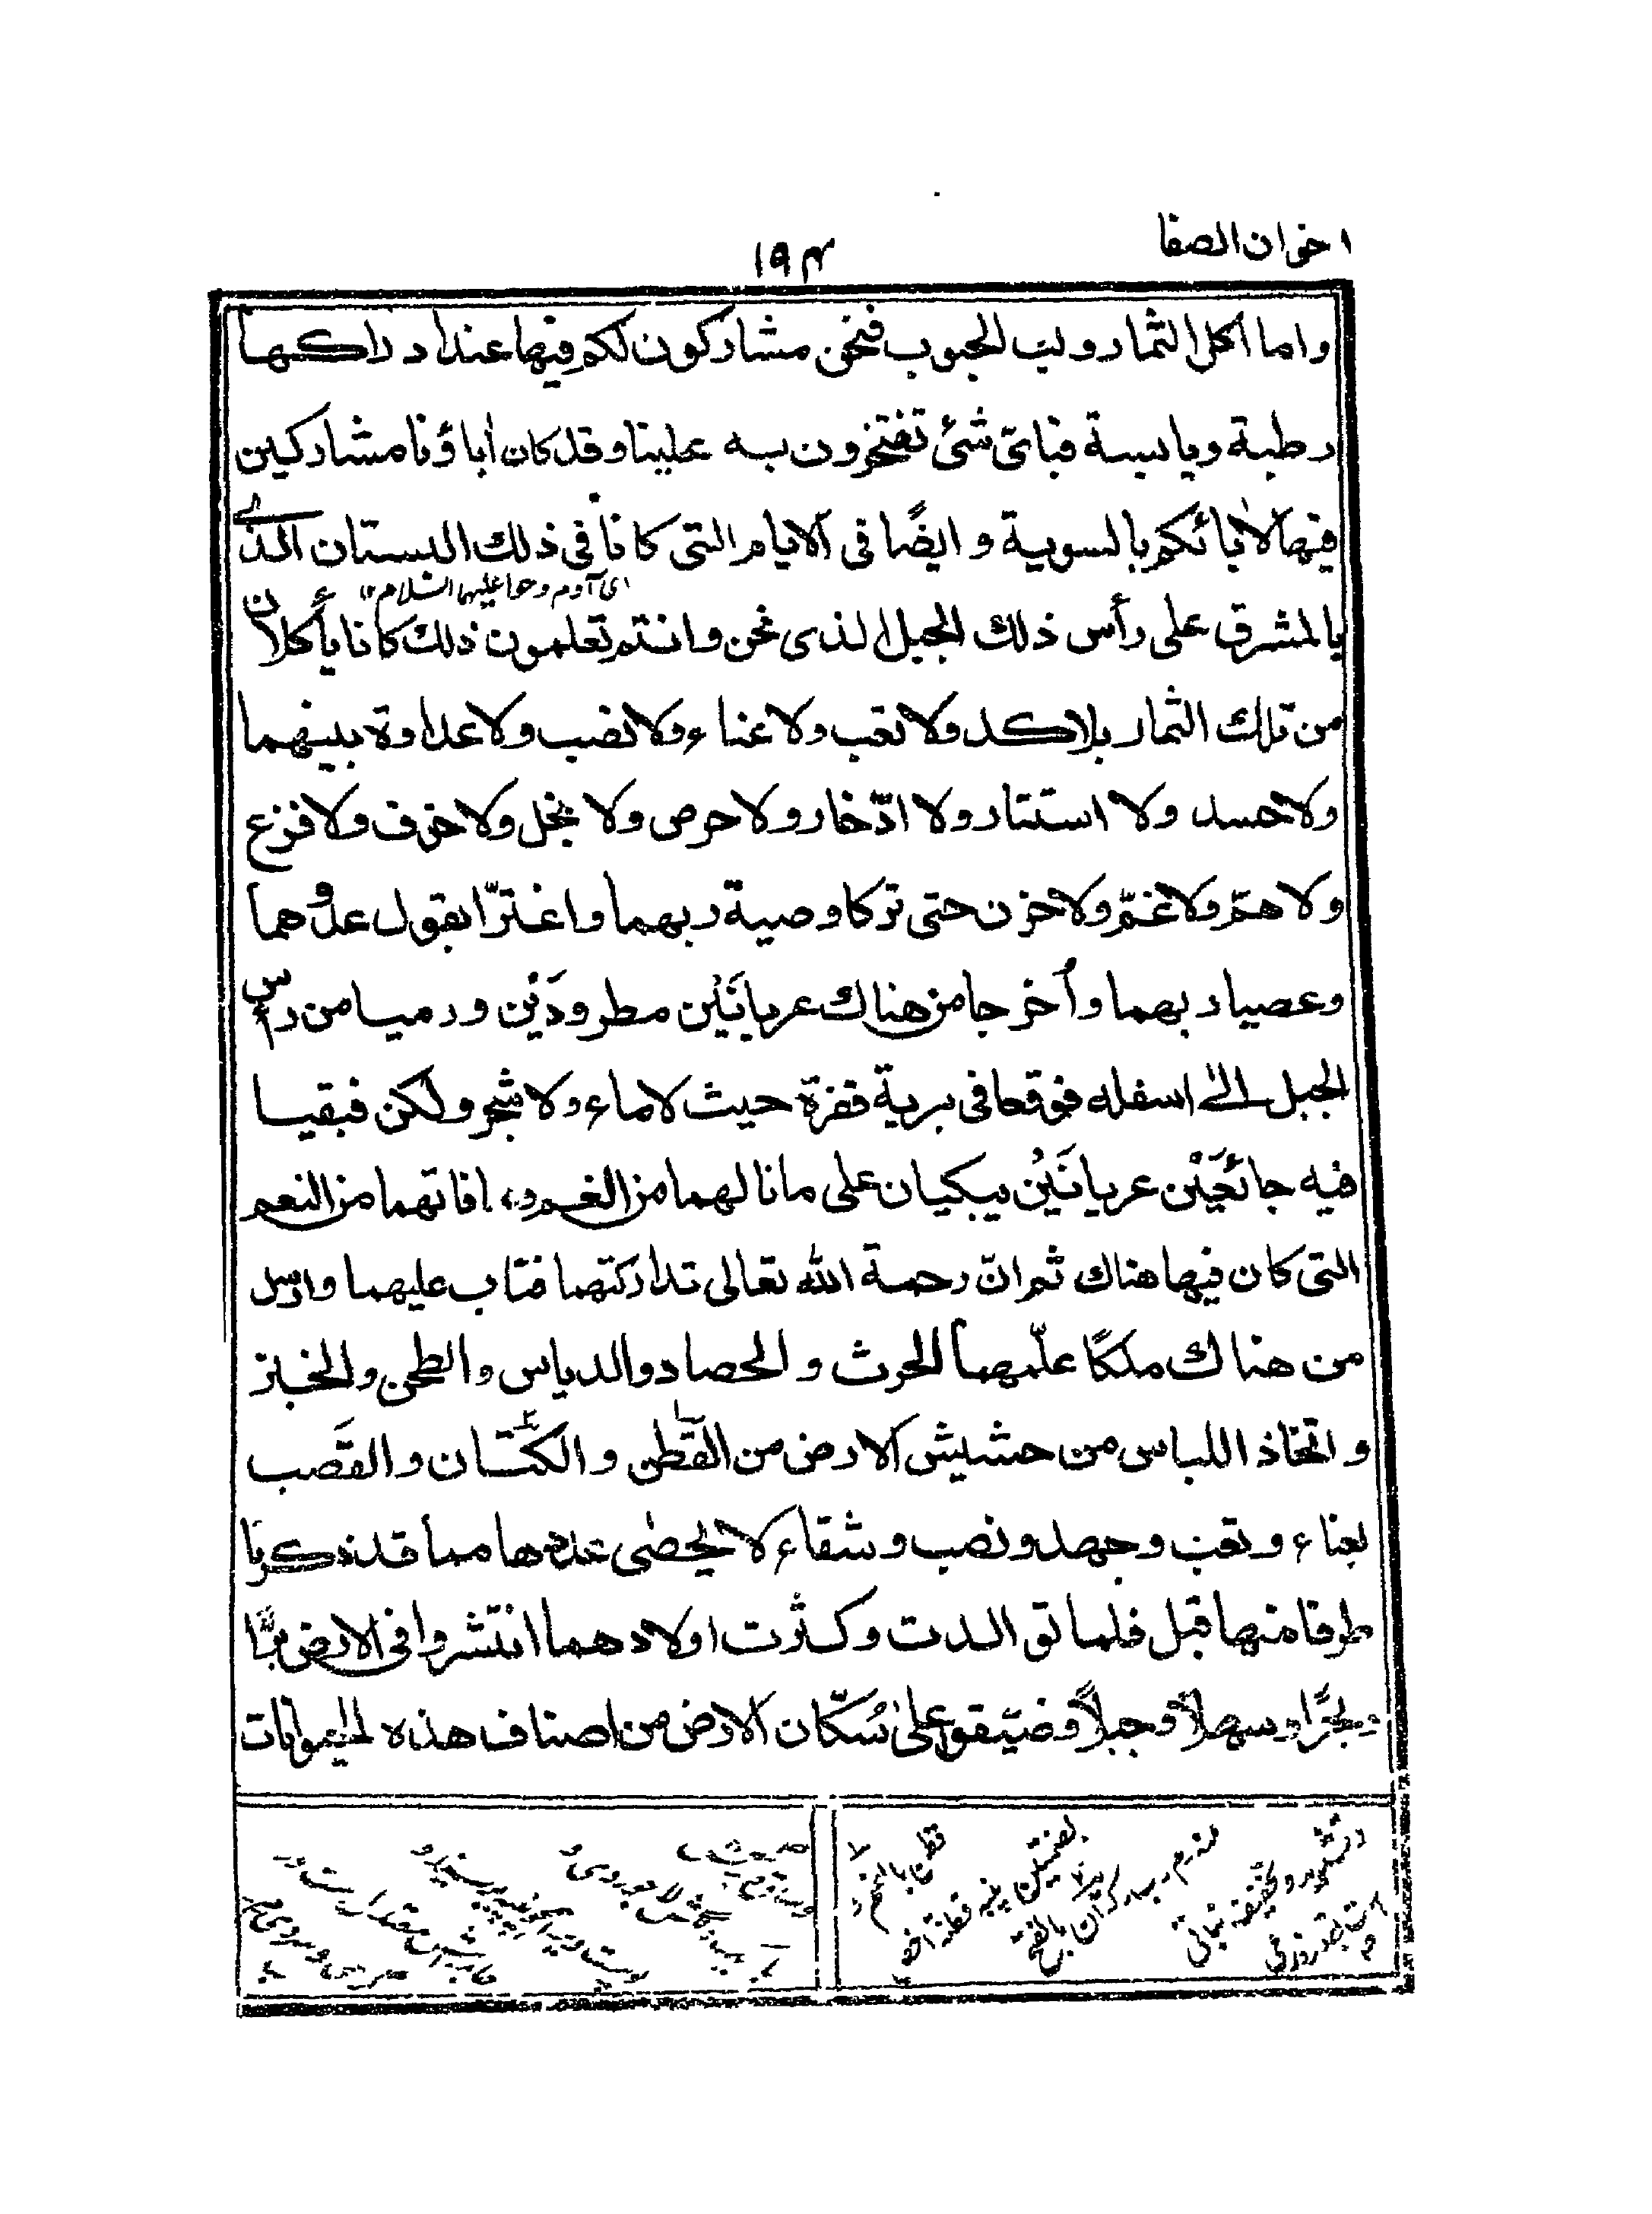 اخوان الصفا
۱۹۴
واما اكل الثمار ولب الحبوب فنحن مشاركون لكم فيها عند ادراكها
رطبة ويابسة فباىّ شئ تفتخرون به علينا وقد كان اٰباؤنا مشاركين
فيها لاٰبائكم بالسوية وايضًا فى الايام التى كانا فى ذلك البستان الذى
اى آدم وحوا عليهما السلام ۱۲
بالمشرق على رأس ذلك الجبل الذى نحن وانتم تعلمون ذلك كانا يأكلان
من تلك الثمار بلا كد ولا تعب ولا عناء ولا نصب ولا عداوة بينهما
ولا حسد ولا استتار ولا ادّخار ولا حرص ولا بخل ولا خوف ولا فزع
ولا همّ ولا غمّ ولا حزن حتى تركا وصية ربهما واغترّا بقول عدوهما
وعصيا ربهما وأخرجا من هناك عريانَيْن مطرودَيْن ورميا من رأس
الجبل الىٰ اسفله فوقعا فى برية قفرة حيث لا ماء ولا شجر ولكن فبقيا
فيه جائعَيْن عريانَيْن يبكيان على ما نالهما من الغم و، افاتهما من النعم
التى كان فيها هناك ثم انّ رحمة الله تعالى تداركتهما فتاب عليهما وارسل
من هناك ملكًا علّمهما الحرث والحصاد والدياس والطحن والخبز
واتخاذ اللباس من حشيش الارض من القطن والكتّان والقَصب
بعناء وتعب وجهد ونصب وشقاء لا يحصٰى عددها مما قد ذكرنا
طرفا منها قبل فلما توالدت وكثرت اولادهما انتشروا فى الارض برًّا
وبحرًا وسهلاً وجبلاً وضيّقوا علىٰ سُكّان الارض من اصناف هذه الحيوانات